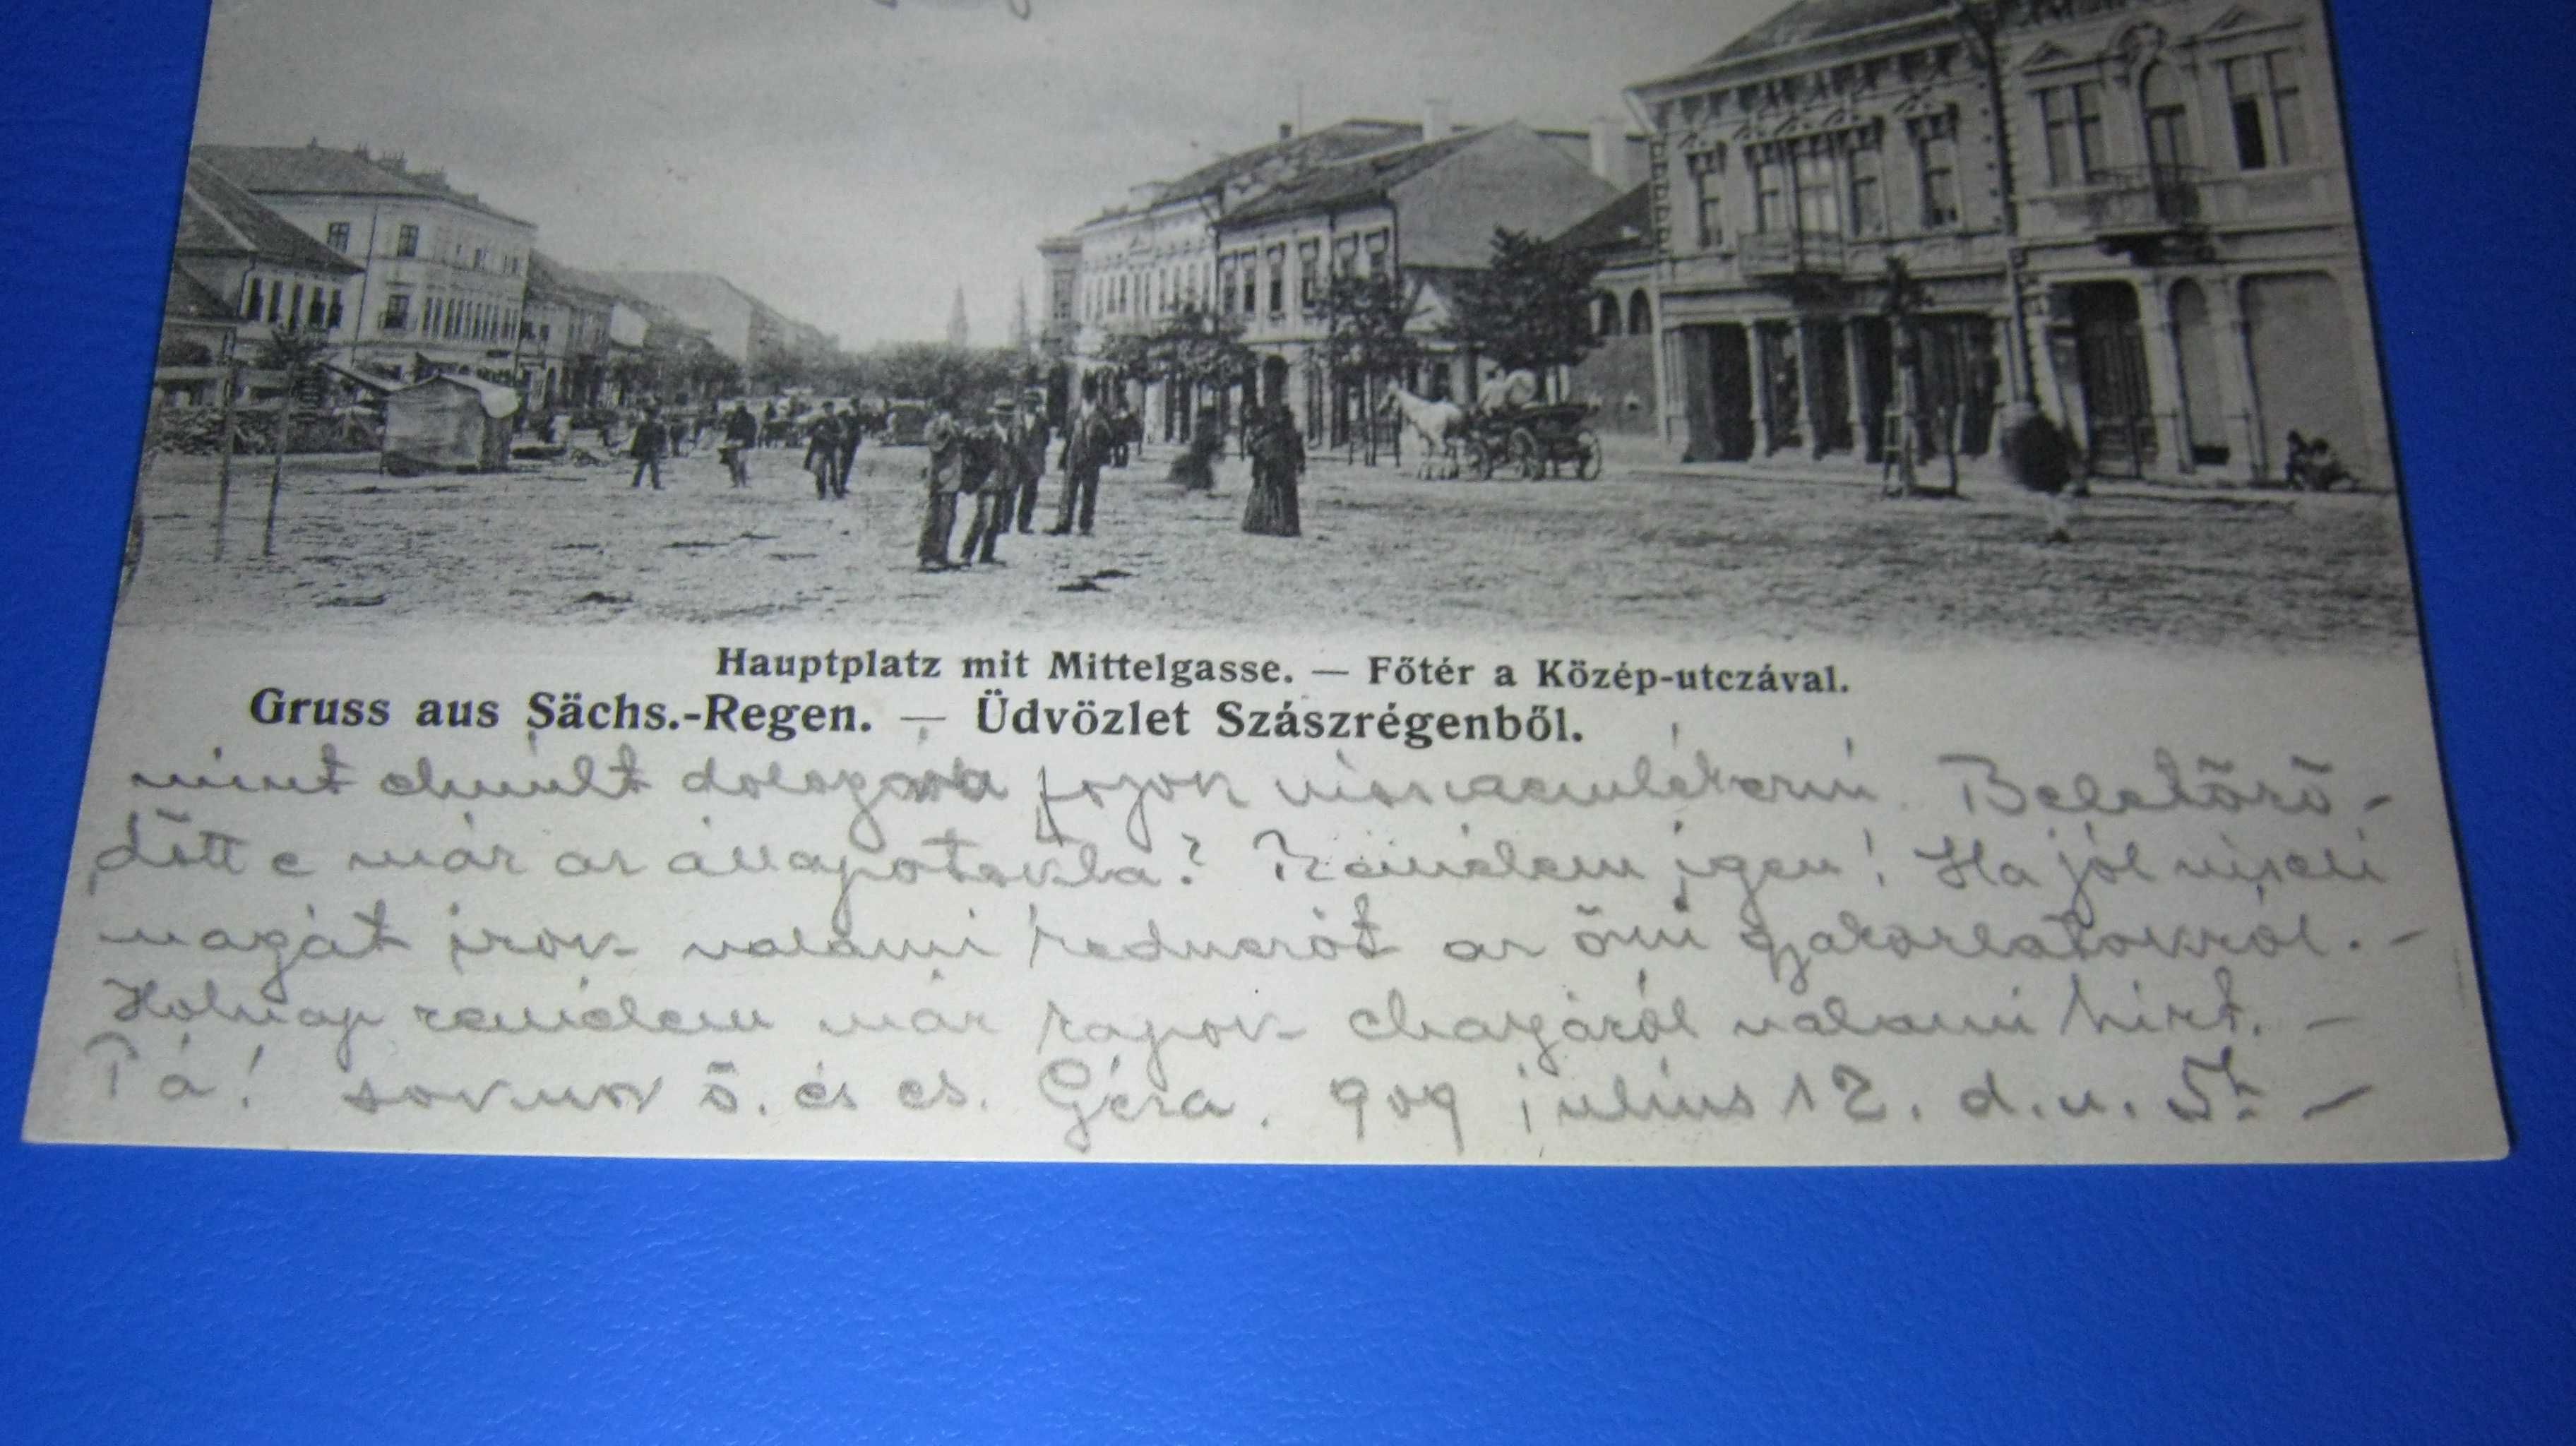 Hauptplatz mit Mittelgasse. — Főtér a Közép-utczával.
Gruss aus Sächs.-Regen. — Üdvözlet Szászrégenből.
mint elmúlt dologra fogok visszaemlékezni. Beletörő-
dött e már az állapotokba? Remélem igen! Ha jól viseli
magát irok valami az őszi gyakorlatokról. —
Holnap remélem már kapok valami hirt. —
Pá! sokszor ö. és cs. Géza. 909 július 12. d. u. 5h —